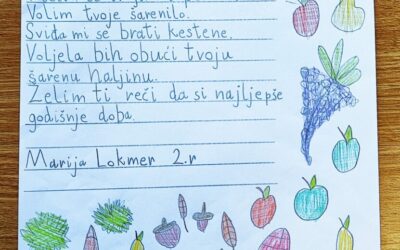 Volim tvoje šarenilo.
Sviđa mi se brati kestene.
Voljela bih obući tvoju
šarenu haljinu.
Želim ti reći da si najljepše
godišnje doba.
Marija Lokmer 2.r